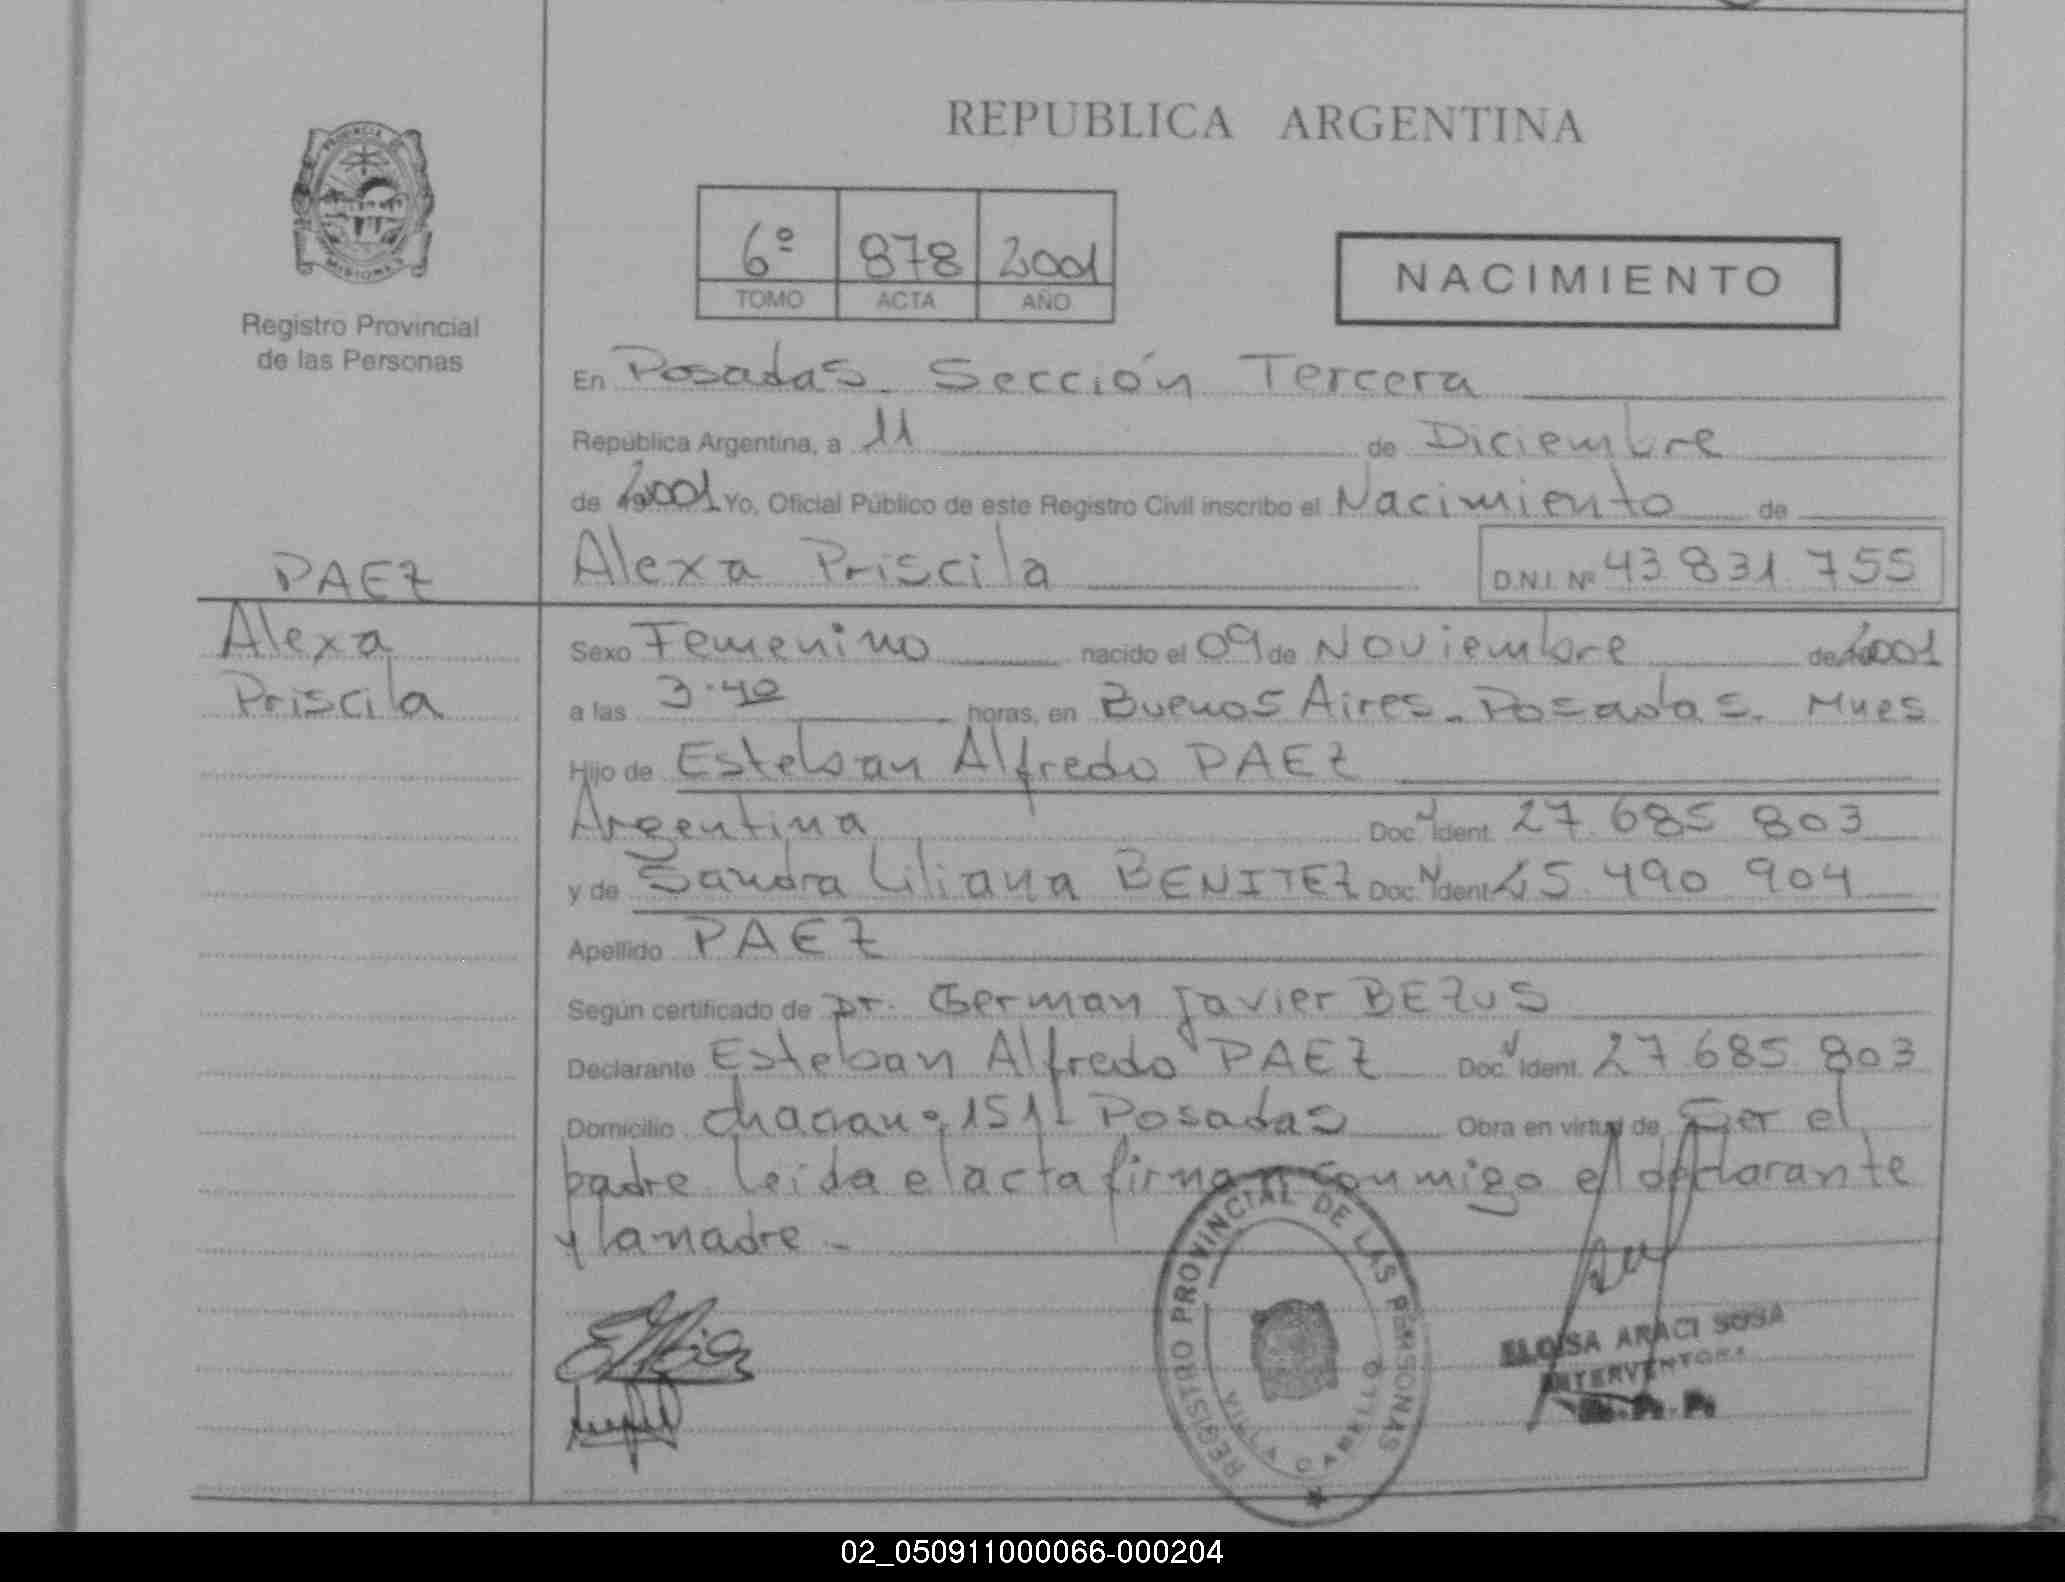 REPUBLICA ARGENTINA
PROVINCIA
MISIONES
Registro Provincial
de las Personas
6º 878 2001
TOMO ACTA AÑO
NACIMIENTO
En Posadas. Sección Tercera
República Argentina, a 11 de Diciembre
de 2001 Yo, Oficial Público de este Registro Civil inscribo el Nacimiento de
PAEZ
Alexa Priscila D.N.I. Nº 43 831 755
Alexa
Priscila
Sexo Femenino nacido el 09 de Noviembre de 2001
a las 3.40 horas, en Buenos Aires. Posadas. Mnes
Hijo de Esteban Alfredo PAEZ
Argentina Doc. Ident. 27 685 803
y de Sandra Liliana BENITEZ Doc. Ident. 25 490 904
Apellido PAEZ
Según certificado de Dr. German Javier BEZUS
Declarante Esteban Alfredo PAEZ Doc. Ident. 27 685 803
Domicilio 151- Posadas Obra en virtud de Ser el
padre leida el acta firman conmigo el declarante
y la madre -
REGISTRO PROVINCIAL DE LAS PERSONAS
ELOISA ARACI SOSA
INTERVENTORA
02_050911000066-000204